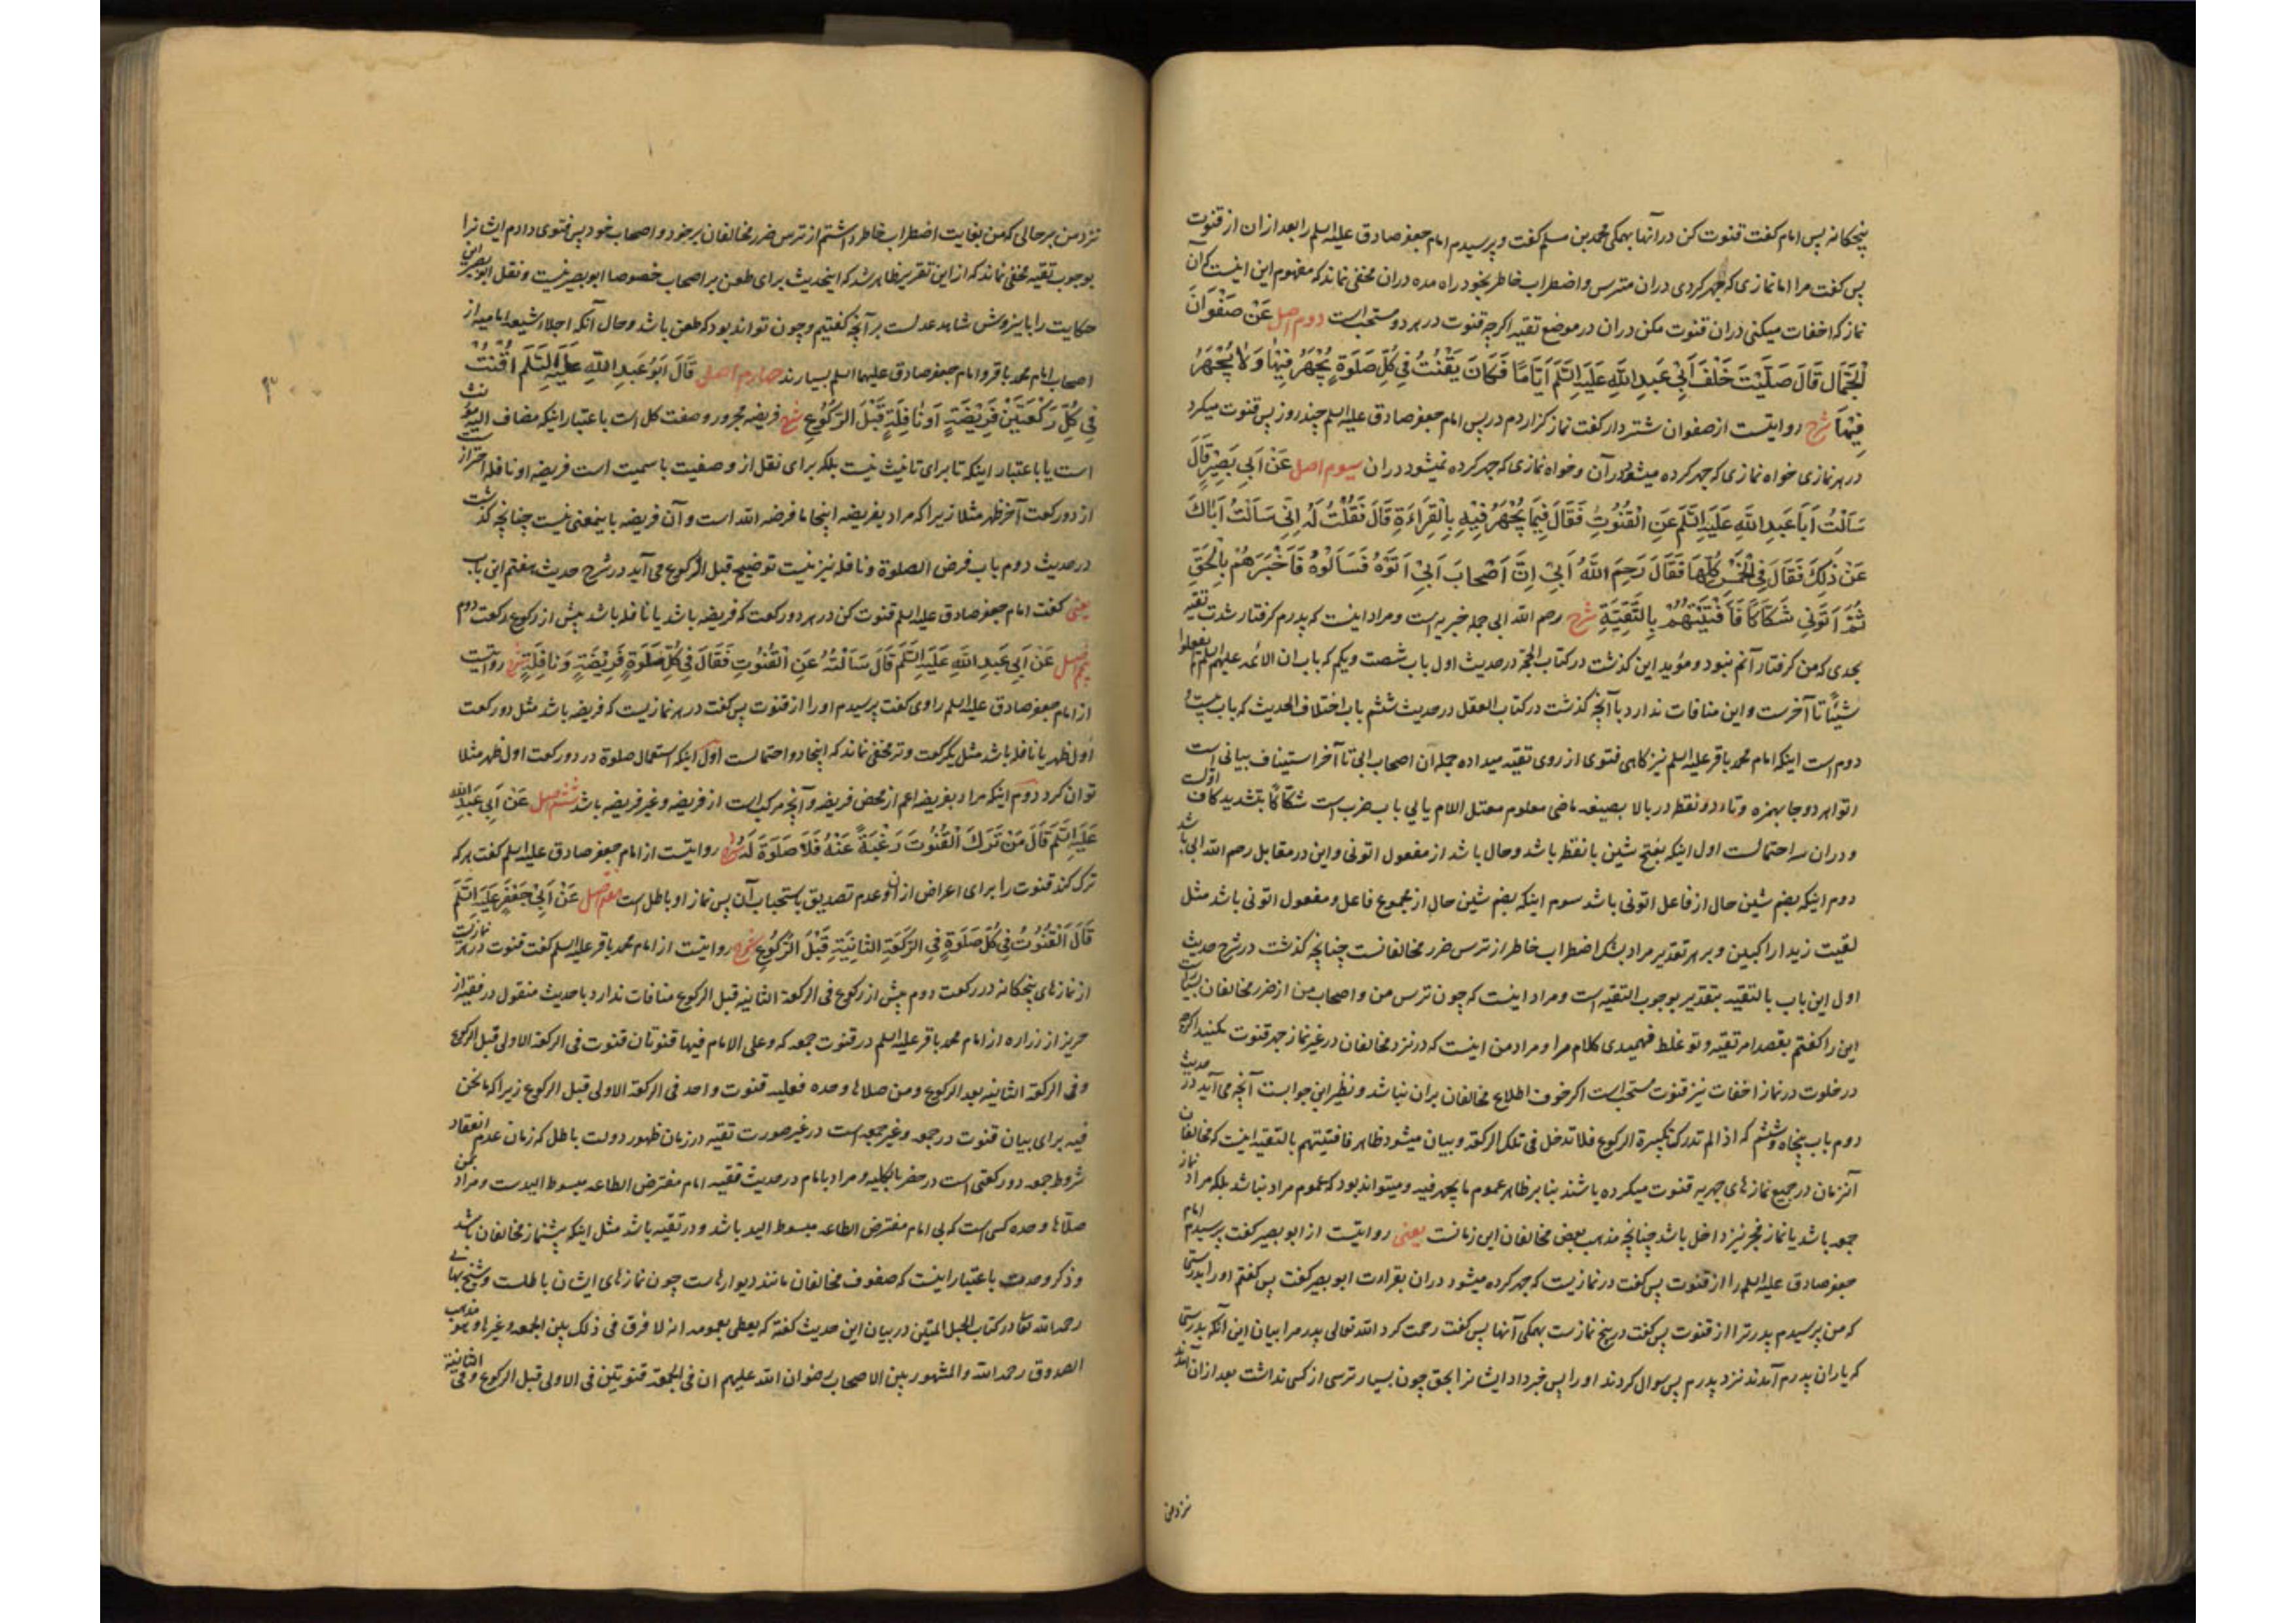 پنجکانه پس امام کفت قنوت کن در آنها بهمکی محمد بن مسلم کفت و پرسیدم امام جعفر صادق علیه السلم را بعد از ان از قنوت
پس کفت مرا اما نمازی که جهر کردی دران مترس و اضطراب خاطر بخود راه مده دران مخفی نماند که مفهوم این اینست که آن
نماز که اخفات میکنی دران قنوت مکن دران در موضع تقیه اکرچه قنوت در هر دو مستحب است دوم اصل عَنْ صَفْوَانَ
الْجَمَّالِ قَالَ صَلَّيْتُ خَلْفَ أَبِي عَبْدِ اللَّهِ عَلَيْهِ السَّلَمُ أَيَّامًا فَكَانَ يَقْنُتُ فِي كُلِّ صَلَوةٍ يُجْهَرُ فِيهَا وَلَا يُجْهَرُ
فِيهَا شرح روایتست از صفوان شتردار کفت نماز کزاردم در پس امام جعفر صادق علیه السلم چند روز پس قنوت میکرد
در هر نمازی خواه نمازی که جهر کرده میشود در آن و خواه نمازی که جهر کرده نمیشود دران سیوم اصل عَنْ أَبِي بَصِيرٍ قَالَ
سَأَلْتُ أَبَا عَبْدِ اللَّهِ عَلَيْهِ السَّلَمُ عَنِ الْقُنُوتِ فَقَالَ فِيمَا يُجْهَرُ فِيهِ بِالْقِرَاءَةِ قَالَ فَقُلْتُ لَهُ إِنِّي سَأَلْتُ أَبَاكَ
عَنْ ذَلِكَ فَقَالَ فِي الْخَمْسِ كُلِّهَا فَقَالَ رَحِمَ اللَّهُ أَبِي إِنَّ أَصْحَابَ أَبِي أَتَوْهُ فَسَأَلُوهُ فَأَخْبَرَهُمْ بِالْحَقِّ
ثُمَّ أَتَوْنِي شَكَاكًا فَأَفْتَيْتُهُمْ بِالتَّقِيَّةِ شرح رحم الله ابی جمله خبریه است و مراد اینست که پدرم کرفتار شدت تقیه
بحدی که من کرفتار آنم نبود و مؤید این کذشت در کتاب الحجة در حدیث اول باب شصت و یکم که باب ان الائمه علیهم السلم لم یفعلوا
شیئًا تا آخرست و این منافات ندارد با آنچه کذشت در کتاب العقل در حدیث ششم باب اختلاف الحدیث که باب بیست و
دوم است اینکه امام محمد باقر علیه السلم نیز کاهی فتوی از روی تقیه میداده جمله ان اصحاب ابی تا آخر استیناف بیانی است
اتوا هر دو جا بهمزه و تاء دو نقطه در بالا بصیغه ماضی معلوم معتل اللام یایی باب ضرب است شکاکا بتشدید کاف اولست
و دران سه احتمالست اول اینکه بفتح شین با نقطه باشد و حال باشد از مفعول اتونی و این در مقابل رحم الله ابی باشد
دوم اینکه بضم شین حال از فاعل اتونی باشد سوم اینکه بضم شین حال از مجموع فاعل و مفعول اتونی باشد مثل
لقیت زیدا راکبین و بر هر تقدیر مراد بشک اضطراب خاطر از ترس ضرر مخالفانست چنانچه کذشت در شرح حدیث
اول این باب بالتقیه بتقدیر بوجوب التقیه است و مراد اینست که چون ترس من و اصحاب من از ضرر مخالفان بسیار است
این را کفتم بقصد امر تقیه و تو غلط فهمیدی کلام مرا و مراد من اینست که در نزد مخالفان در غیر نماز جهر قنوت مکنید اکرچه
در خلوت در نماز اخفات نیز قنوت مستحب است اکر خوف اطلاع مخالفان بران نباشد و نظیر این جوابست آنچه می آید در حدیث
دوم باب پنجاه و ششم که اذا لم تدرک تکبیرة الرکوع فلا تدخل فی تلک الرکعة و بیان میشود ظاهر فافتیتهم بالتقیه اینست که مخالفان
آنزمان در جمیع نمازهای جهریه قنوت میکرده باشند بنا بر ظاهر عموم ما یجهر فیه و میتواند بود که عموم مراد نباشد بلکه مراد نماز
جمعه باشد یا نماز فجر نیز داخل باشد چنانچه مذهب بعض مخالفان این زمانست یعنی روایتست از ابو بصیر کفت پرسیدم امام
جعفر صادق علیه السلم را از قنوت پس کفت در نمازیست که جهر کرده میشود دران بقراءت ابو بصیر کفت پس کفتم او را بدرستی
که من پرسیدم پدر ترا از قنوت پس کفت در پنج نمازست بهمکی آنها پس کفت رحمت کرد الله تعالی پدر مرا بیان این آنکه بدرستی
که یاران پدرم آمدند نزد پدرم پس سوال کردند او را پس خبر داد ایشانرا بحق چون بسیار ترسی از کسی نداشت بعد ازان آمدند
نزد من
نزد من بر حالی که من بغایت اضطراب خاطر داشتم از ترس ضرر مخالفان بر خود و اصحاب خود پس فتوی دادم ایشانرا
بوجوب تقیه مخفی نماند که از این تقریر ظاهر شد که اینحدیث برای طعن بر اصحاب خصوصا ابو بصیر نیست و نقل ابو بصیر این
حکایت را با پیروش شاهد عدلست بر آنچه کفتیم و چون تواند بود که طعن باشد و حال آنکه اجلاء شیعه امامیه از
اصحاب امام محمد باقر و امام جعفر صادق علیهما السلم بسیارند چهارم اصل قَالَ أَبُو عَبْدِ اللَّهِ عَلَيْهِ السَّلَمُ اقْنُتْ
فِي كُلِّ رَكْعَتَيْنِ فَرِيضَةٍ أَوْ نَافِلَةٍ قَبْلَ الرُّكُوعِ شرح فریضه مجرور و صفت کل است باعتبار اینکه مضاف الیه مؤنث
است یا باعتبار اینکه تا برای تانیث نیست بلکه برای نقل از وصفیت باسمیت است فریضه او نافله احتراز است
از دو رکعت آخر ظهر مثلا زیرا که مراد بفریضه اینجا ما فرضه الله است و آن فریضه باینمعنی نیست چنانچه کذشت
در حدیث دوم باب فرض الصلوة و نافله نیز نیست توضیح قبل الرکوع می آید در شرح حدیث هفتم این باب
یعنی کفت امام جعفر صادق علیه السلم قنوت کن در هر دو رکعت که فریضه باشد یا نافله باشد پیش از رکوع رکعت دوم
پنجم اصل عَنْ أَبِي عَبْدِ اللَّهِ عَلَيْهِ السَّلَمُ قَالَ سَأَلْتُهُ عَنِ الْقُنُوتِ فَقَالَ فِي كُلِّ صَلَوةٍ فَرِيضَةٍ وَنَافِلَةٍ شرح روایتست
از امام جعفر صادق علیه السلم راوی کفت پرسیدم او را از قنوت پس کفت در هر نمازیست که فریضه باشد مثل دو رکعت
اول ظهر یا نافله باشد مثل یک رکعت وتر مخفی نماند که اینجا دو احتمالست اول اینکه استعمال صلوة در دو رکعت اول ظهر مثلا
توان کرد دوم اینکه مراد بفریضه اعم از محض فریضه و آنچه مرکب است از فریضه و غیر فریضه باشد ششم اصل عَنْ أَبِي عَبْدِ اللَّهِ
عَلَيْهِ السَّلَمُ قَالَ مَنْ تَرَكَ الْقُنُوتَ رَغْبَةً عَنْهُ فَلَا صَلَوةَ لَهُ شرح روایتست از امام جعفر صادق علیه السلم کفت هر که
ترک کند قنوت را برای اعراض از ان و عدم تصدیق باستحباب آن پس نماز او باطل است هفتم اصل عَنْ أَبِي جَعْفَرٍ عَلَيْهِ السَّلَمُ
قَالَ الْقُنُوتُ فِي كُلِّ صَلَوةٍ فِي الرَّكْعَةِ الثَّانِيَةِ قَبْلَ الرُّكُوعِ شرح روایتست از امام محمد باقر علیه السلم کفت قنوت در هر نمازیست
از نمازهای پنجکانه در رکعت دوم پیش از رکوع فی الرکعة الثانیه قبل الرکوع منافات ندارد با حدیث منقول در فقیه از
حریز از زراره از امام محمد باقر علیه السلم در قنوت جمعه که و علی الامام فیها قنوتان قنوت فی الرکعة الاولی قبل الرکوع
و فی الرکعة الثانیه بعد الرکوع و من صلاها وحده فعلیه قنوت واحد فی الرکعة الاولی قبل الرکوع زیرا که ما نحن
فیه برای بیان قنوت در جمعه و غیر جمعه است در غیر صورت تقیه در زمان ظهور دولت باطل که زمان عدم انعقاد
شروط جمعه دو رکعتی است در حضر بالکلیه و مراد بامام در حدیث فقیه امام مفترض الطاعه مبسوط الیدست و مراد بمن
صلاها وحده کسی است که بی امام مفترض الطاعه مبسوط الید باشد و در تقیه باشد مثل اینکه پیشنماز مخالفان باشد
و ذکر وحدت باعتبار اینست که صفوف مخالفان مانند دیوارهاست چون نمازهای ایشان باطلست و شیخ بهایی
رحمه الله تعا در کتاب الحبل المتین در بیان این حدیث کفته که یعطی بعمومه انه لا فرق فی ذلک بین الجمعه و غیرها و هو مذهب
الصدوق رحمه الله والمشهور بین الاصحاب رضوان الله علیهم ان فی الجمعة قنوتین فی الاولی قبل الرکوع و فی الثانیة